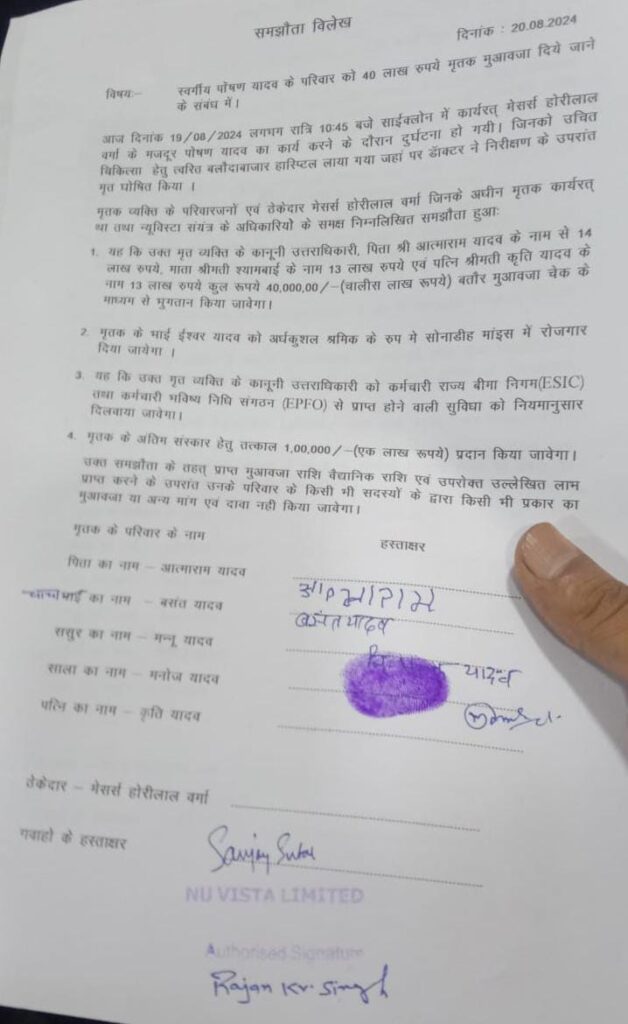 समझौता विलेख
दिनांक : 20.08.2024
विषयः– स्वर्गीय पोषण यादव के परिवार को 40 लाख रुपये मृतक मुआवजा दिये जाने
के संबंध में।
आज दिनांक 19/08/2024 लगभग रात्रि 10:45 बजे साईक्लोन में कार्यरत् मेसर्स होरीलाल
वर्मा के मजदूर पोषण यादव का कार्य करने के दौरान दुर्घटना हो गयी। जिनको उचित
चिकित्सा हेतु त्वरित बलौदाबाजार हास्पिटल लाया गया जहां पर डॉक्टर ने निरीक्षण के उपरांत
मृत घोषित किया ।
मृतक व्यक्ति के परिवारजनों एवं ठेकेदार मेसर्स होरीलाल वर्मा जिनके अधीन मृतक कार्यरत्
था तथा न्यूविस्टा संयंत्र के अधिकारियों के समक्ष निम्नलिखित समझौता हुआः
1. यह कि उक्त मृत व्यक्ति के कानूनी उत्तराधिकारी, पिता श्री आत्माराम यादव के नाम से 14
लाख रुपये, माता श्रीमती श्यामबाई के नाम 13 लाख रुपये एवं पत्नि श्रीमती कृति यादव के
नाम 13 लाख रुपये कुल रूपये 40,000,00/–(चालीस लाख रूपये) बतौर मुआवजा चेक के
माध्यम से भुगतान किया जावेगा।
2. मृतक के भाई ईश्वर यादव को अर्धकुशल श्रमिक के रुप मे सोनाडीह मांइस में रोजगार
दिया जायेगा ।
3. यह कि उक्त मृत व्यक्ति के कानूनी उत्तराधिकारी को कर्मचारी राज्य बीमा निगम(ESIC)
तथा कर्मचारी भविष्य निधि संगठन (EPFO) से प्राप्त होने वाली सुविधा को नियमानुसार
दिलवाया जावेगा।
4. मृतक के अंतिम संस्कार हेतु तत्काल 1,00,000/–(एक लाख रूपये) प्रदान किया जावेगा।
उक्त समझौता के तहत् प्राप्त मुआवजा राशि वैद्यानिक राशि एवं उपरोक्त उल्लेखित लाभ
प्राप्त करने के उपरांत उनके परिवार के किसी भी सदस्यों के द्वारा किसी भी प्रकार का
मुआवजा या अन्य मांग एवं दावा नही किया जावेगा।
मृतक के परिवार के नाम हस्ताक्षर
पिता का नाम – आत्माराम यादव आत्माराम
भाई का नाम – बसंत यादव बसंत यादव
ससुर का नाम – मन्नू यादव यादव
साला का नाम – मनोज यादव
पत्नि का नाम – कृति यादव
ठेकेदार – मेसर्स होरीलाल वर्मा
गवाहो के हस्ताक्षर
NU VISTA LIMITED
Authorised Signature
Rajan Kr. Singh